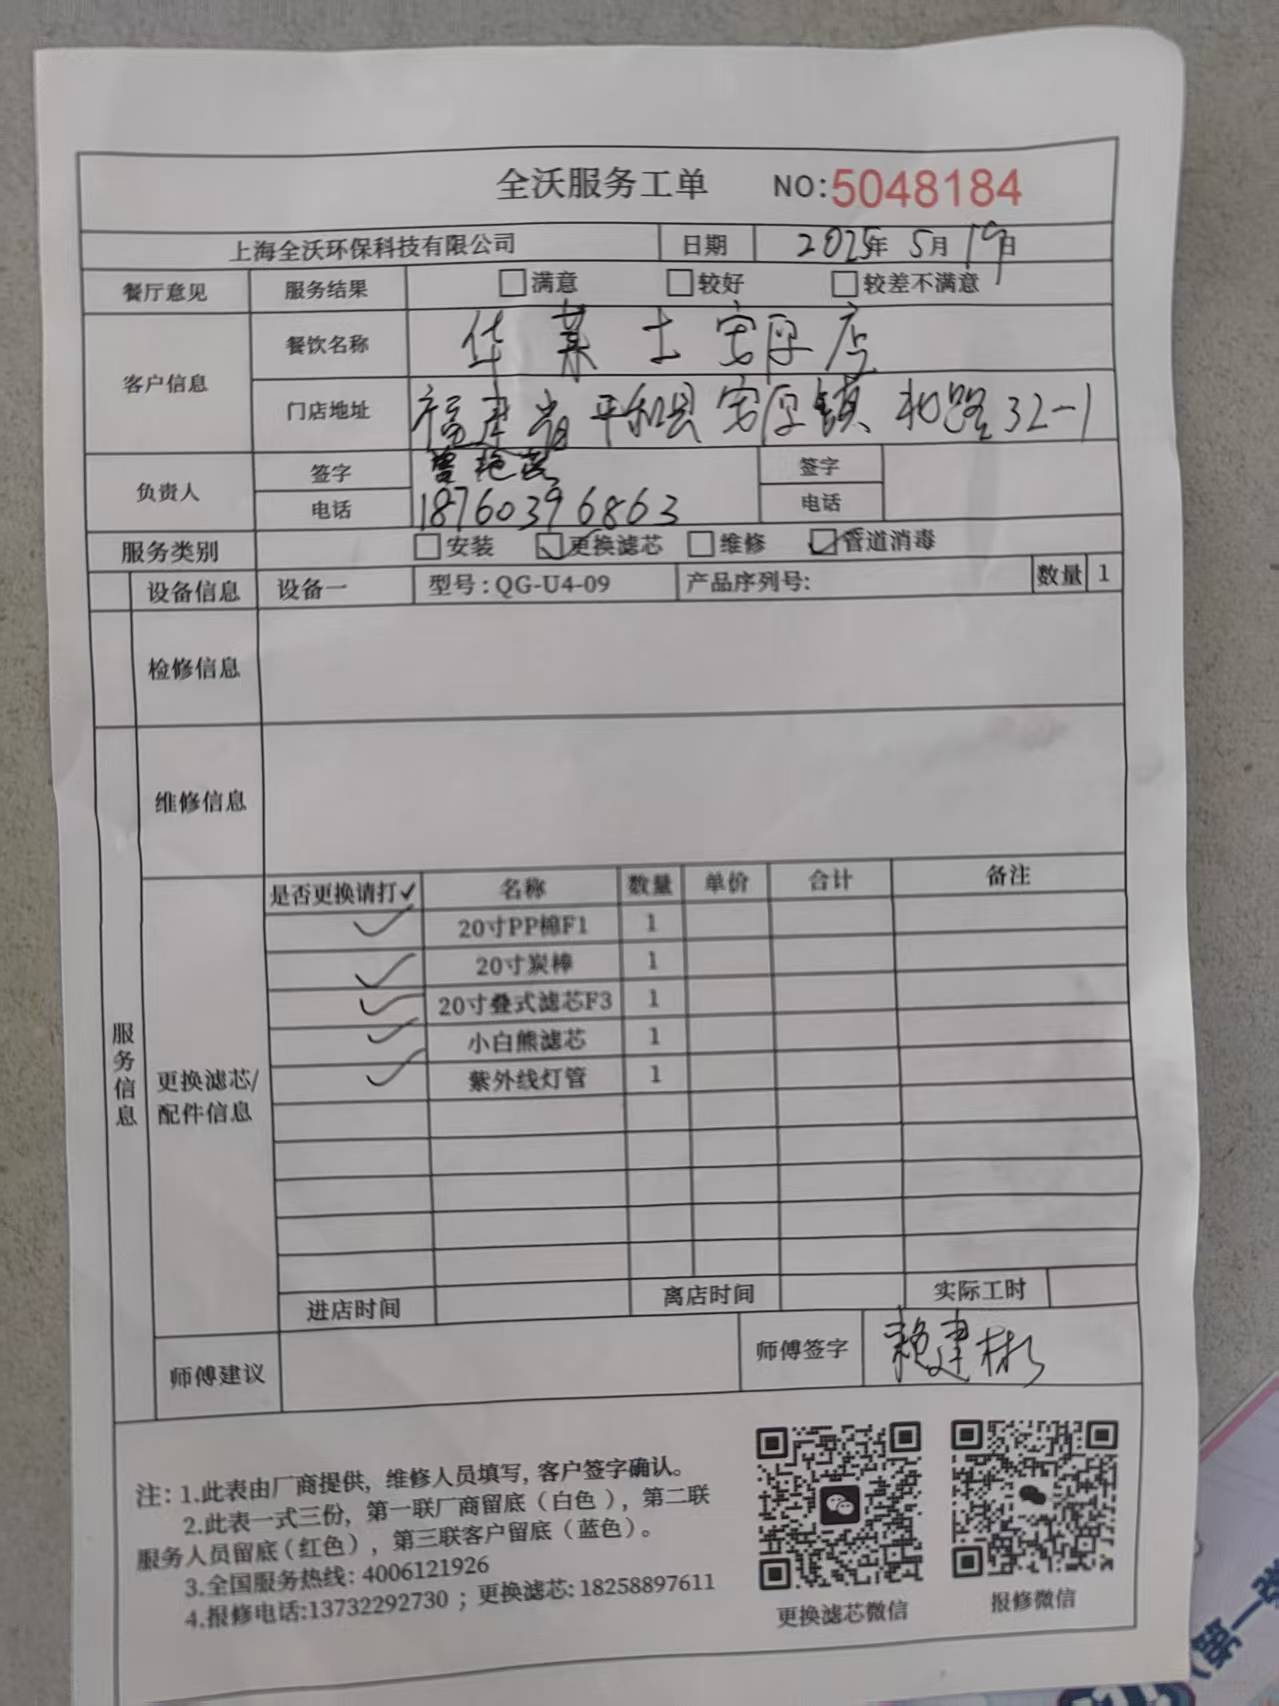 全沃服务工单 NO:5048184
上海全沃环保科技有限公司 日期 2025年 5月 19日
餐厅意见 服务结果 □满意 □较好 □较差不满意
客户信息 餐饮名称 华莱士安厚店
门店地址 福建省平和县安厚镇北路32-1
负责人 签字 曾艳 签字
电话 18760396863 电话
服务类别 □安装 ☑更换滤芯 □维修 ☑管道消毒
设备信息 设备一 型号:QG-U4-09 产品序列号: 数量 1
检修信息
维修信息
服务信息
更换滤芯/配件信息
是否更换请打✓ 名称 数量 单价 合计 备注
✓ 20寸PP棉F1 1
✓ 20寸炭棒 1
✓ 20寸叠式滤芯F3 1
✓ 小白熊滤芯 1
✓ 紫外线灯管 1
进店时间 离店时间 实际工时
师傅建议 师傅签字 赖建彬
注: 1.此表由厂商提供, 维修人员填写, 客户签字确认。
2.此表一式三份, 第一联厂商留底(白色), 第二联
服务人员留底(红色), 第三联客户留底(蓝色)。
3.全国服务热线: 4006121926
4.报修电话:13732292730 ; 更换滤芯: 18258897611
更换滤芯微信 报修微信
(第一